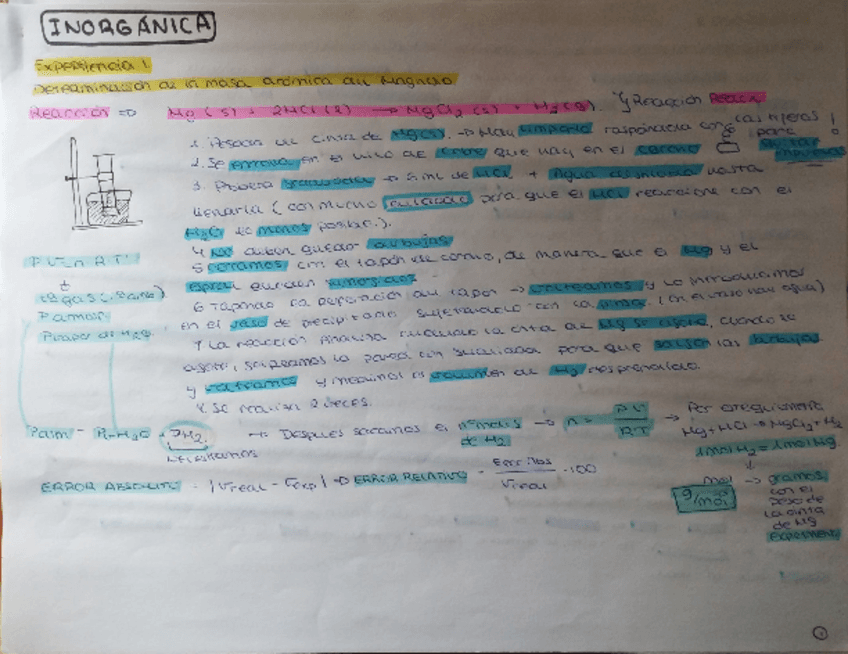 INORGÁNICA
Experiencia 1
Determinación de la masa atómica del Magnesio
Reacción => Mg (s) + 2HCl (l) → MgCl2 (s) + H2 (g). Reacción Redox
1. Pesamos la cinta de Mg(s). → Muy limpiarla raspándola con las tijeras para quitar impurezas
2. Se enrolla en el hilo de cobre que hay en el corcho
3. Probeta graduada → 5 mL de HCl + Agua destilada hasta
llenarla (con mucho cuidado para que el HCl reaccione con el
H2O lo menos posible.).
4 No deben quedar burbujas
5 cerramos con el tapón de corcho, de manera que el Mg y el
queden sumergidos
6 Tapando la del tapón → volteamos y lo introducimos
en el vaso de precipitado sujetándolo con la pinza. (en el vaso hay agua)
7 La reacción finaliza cuando la cinta de Mg se agote, cuando se
agote, golpeamos la pared con suavidad para que salgan las burbujas
y medimos el volumen de H2 desprendido.
8. Se realiza 2 veces.
PV=n·R·T
Patm = P H2O + PH2
necesitamos
→ Después sacamos el nº moles de H2 → n = PV / RT → Por estequiometría
Mg + HCl → MgCl2 + H2
1mol H2 = 1mol Mg
mol → gramos
con el
peso de
la cinta
de Mg
g/mol
ERROR ABSOLUTO = |Vreal - Vexp| => ERROR RELATIVO = / Vreal · 100
1